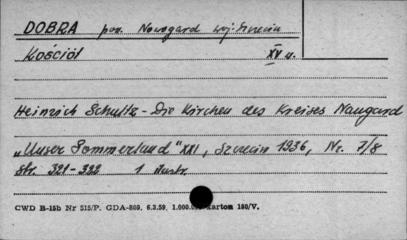 DOBRA pow. Nowogard woj. Szczecin
Kościół XV w.
Heinrich Schultz - Die Kirchen des Kreises Naugard
„Unser Pommerland" XXI, Szczecin 1936, Nr. 7/8
str. 321-322 1 ilustr.
CWD B-15b Nr 515/P. GDA-809. 6.3.59. 1.000.000 karton 180/V.